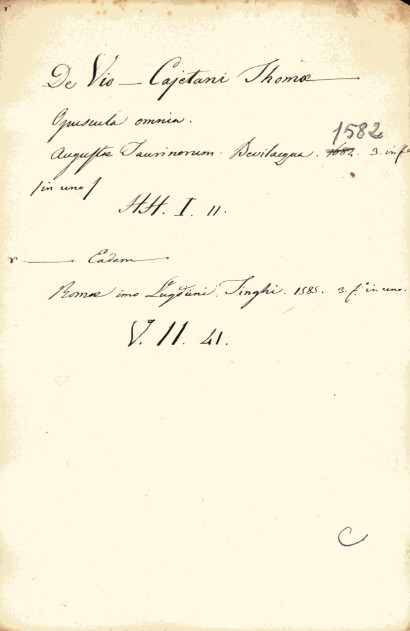 De Vio — Cajetani Thomæ —
Opuscula omnia.
1582
Augustæ Taurinorum. Bevilacqua. 1682. 3. in fº
/in uno/
HH. I. 11.
r — Eadem —
Romæ imo Lugduni. Iinghi. 1585. 3. f.º in uno.
V.º II. 41.
C